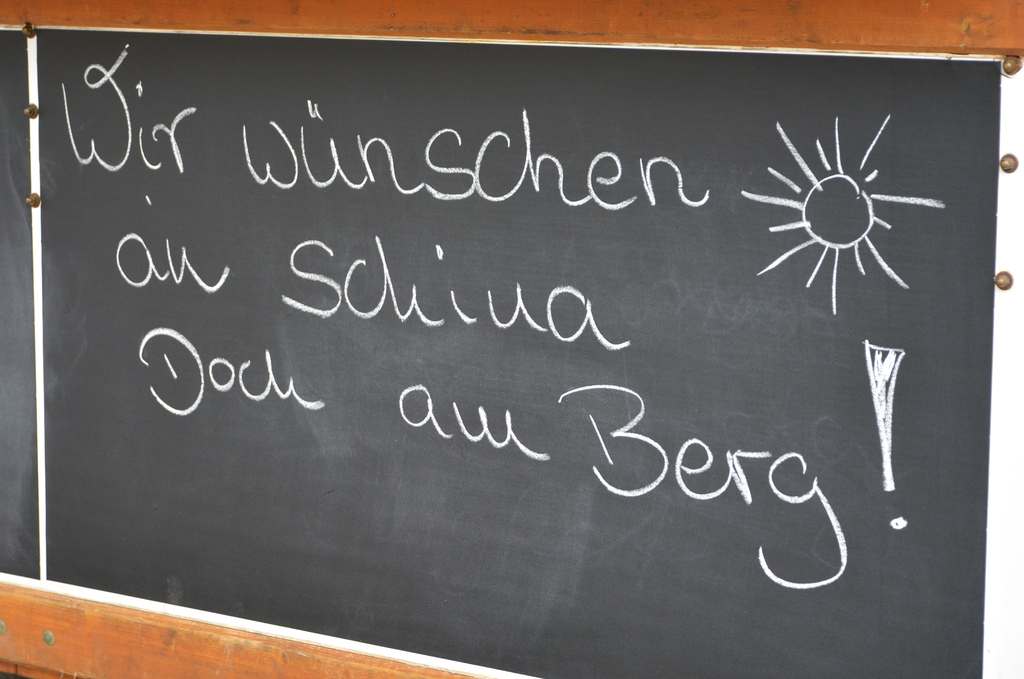 Wir wünschen
ain schina
Doch am Berg!